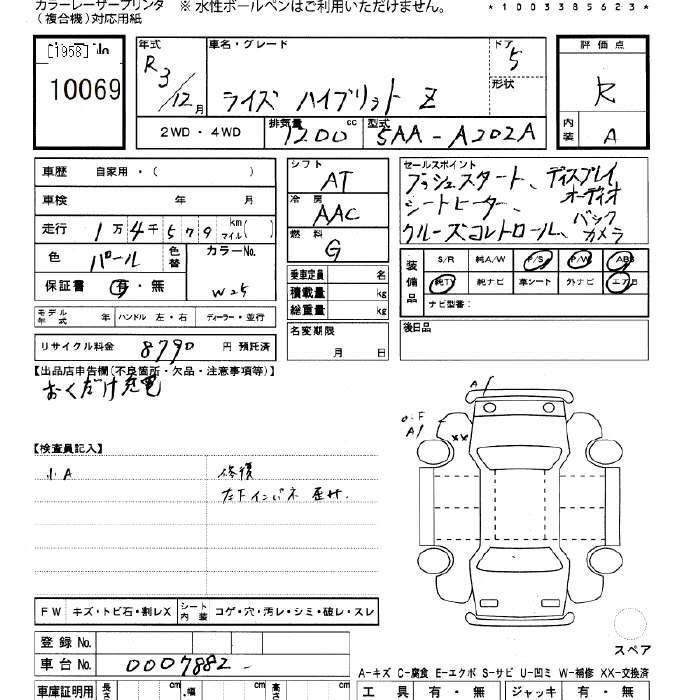 カラーレーザープリンタ ※ 水性ボールペンはご利用いただけません。
(複合機)対応用紙 *1003385623*
[1958]
10069
年式 R3/12月
車名・グレード ライズ ハイブリット Z
ドア 5
形状
評価点 R
内装 A
2WD・4WD
排気量 1200 cc
型式 5AA-A202A
車歴 自家用・( )
車検 年 月
走行 1万4千579 km マイル( )
色 パール 色替 カラーNo. W25
保証書 有・無
モデル年式 年 ハンドル 左・右 ディーラー・並行
リサイクル料金 8790 円 預託済
シフト AT
冷房 AAC
燃料 G
乗車定員 名
積載量 kg
総重量 kg
名変期限 月 日
セールスポイント
プッシュスタート、ディスプレイ
オーディオ
シートヒーター、バック
クルーズコントロール、カメラ
装備品 S/R 純A/W P/S P/W ABS
純TV 純ナビ 革シート 外ナビ エアB
ナビ型番:
後日品
【出品店申告欄(不良箇所・欠品・注意事項等)】
おくだけ充電
【検査員記入】
小A 修復
左Fインパネ 歪サ.
A1
A1
××
FW キズ・トビ石・割レX シート内装 コゲ・穴・汚レ・シミ・破レ・スレ
登録 No.
車台 No. 0007882-
スペア
A-キズ C-腐食 E-エクボ S-サビ U-凹ミ W-補修 XX-交換済
車庫証明用 長さ cm 幅 cm 高さ cm
工具 有・無 ジャッキ 有・無